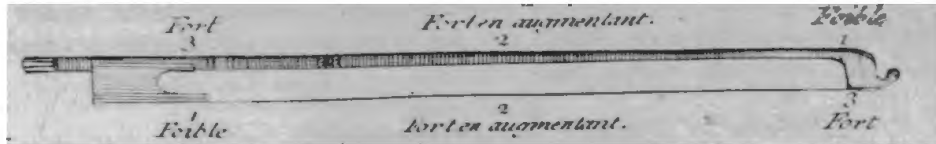 Fort Fort en augmentant. Foible
3 2 1
1 2 3
Foible Fort en augmentant. Fort